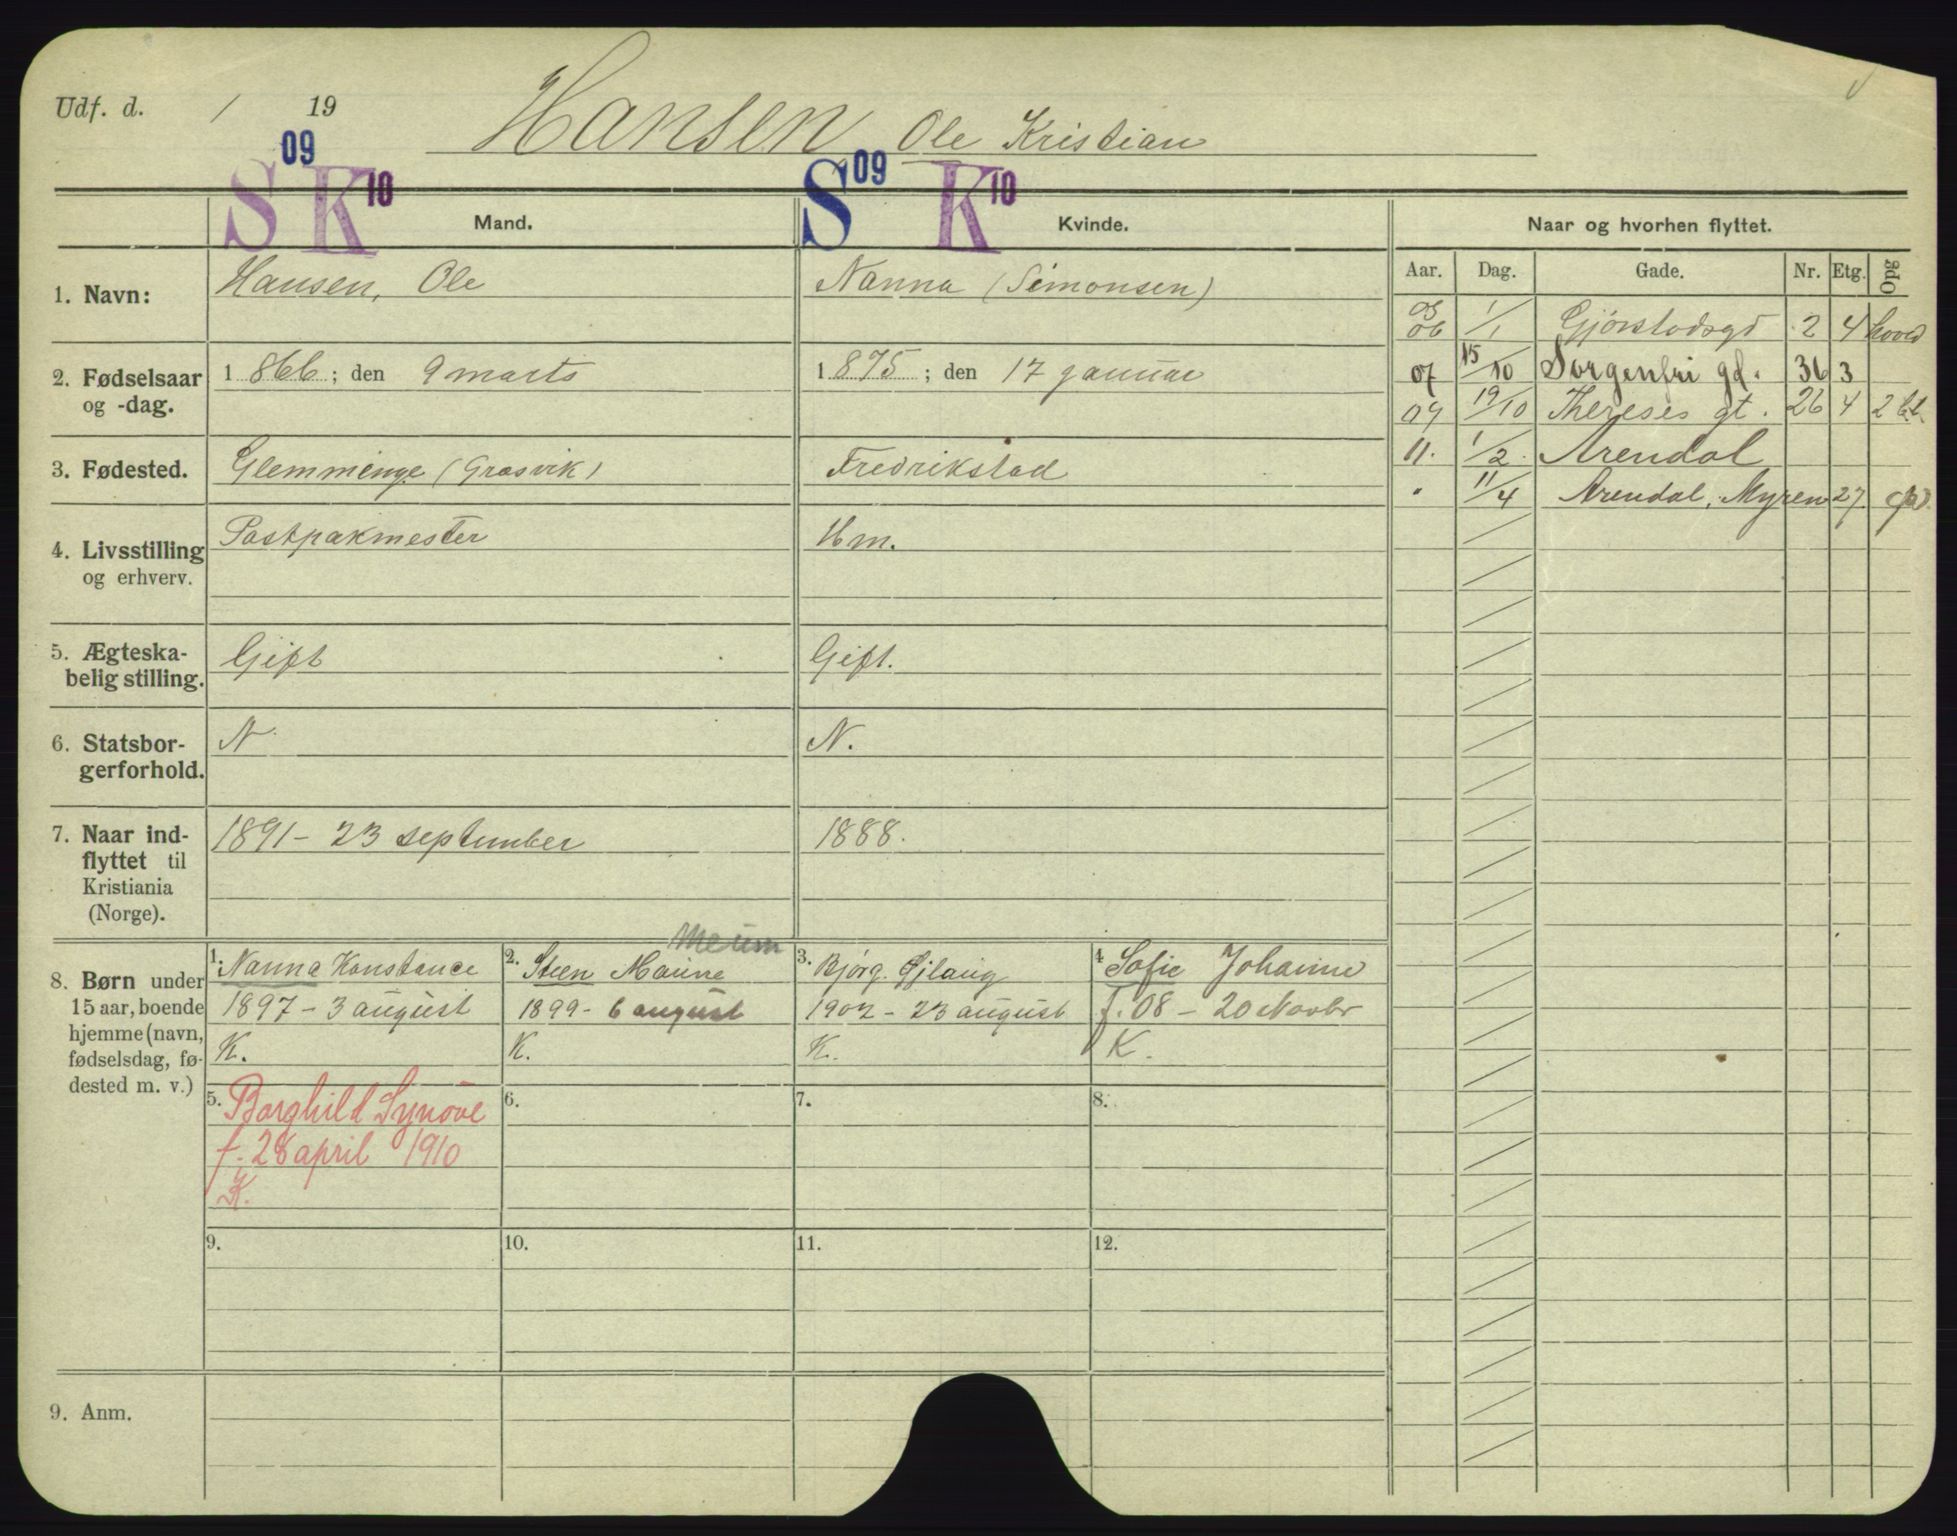 Udf. d. / 19
Hansen Ole Kristian
S 09 K 10 Mand.
S 09 K 10 Kvinde.
Naar og hvorhen flyttet.
Aar. Dag. Gade. Nr. Etg. Opg
06 1/1 2 4
07 15/10 Sorgenfri gd. 36 3
09 19/10 Thereses gt. 26 4 2
11. 1/2 Arendal
" 11/4 Arendal, Myren 27
1. Navn:
Hansen, Ole
Nanna (Simonsen)
2. Fødselsaar
og -dag.
1 866; den 9 marts
1 875; den 17 januar
3. Fødested.
Glemminge (Grosvik)
Fredrikstad
4. Livsstilling
og erhverv.
Postpakmester
Hm.
5. Ægteska-
belig stilling.
Gift
Gift.
6. Statsbor-
gerforhold.
N
N.
7. Naar ind-
flyttet til
Kristiania
(Norge).
1891 - 23 september
1888.
8. Børn under
15 aar, boende
hjemme (navn,
fødselsdag, fø-
dested m. v.)
1. Nanna Konstance
1897 - 3 august
K.
Meum
2. Steen
1899 - 6 august
K.
3. Bjørg
1902 - 23 august
K.
4 Sofie Johanne
f. 08 - 20 Novbr
K.
5. Borghild Synøve
f. 28 april 1910
K.
6.
7.
8.
9.
10.
11.
12.
9. Anm.